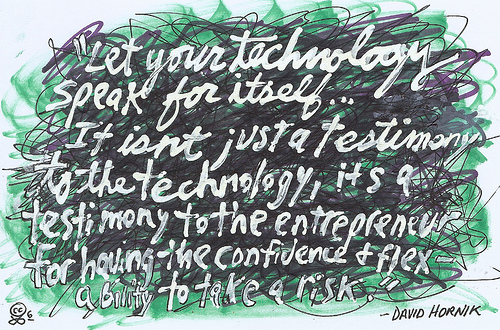 "Let your technology
speak for itself...
It isnt just a testimony
to the technology, its a
testimony to the entrepreneur
for having the confidence & flex-
ability to take a risk."
- DAVID HORNIK
cc